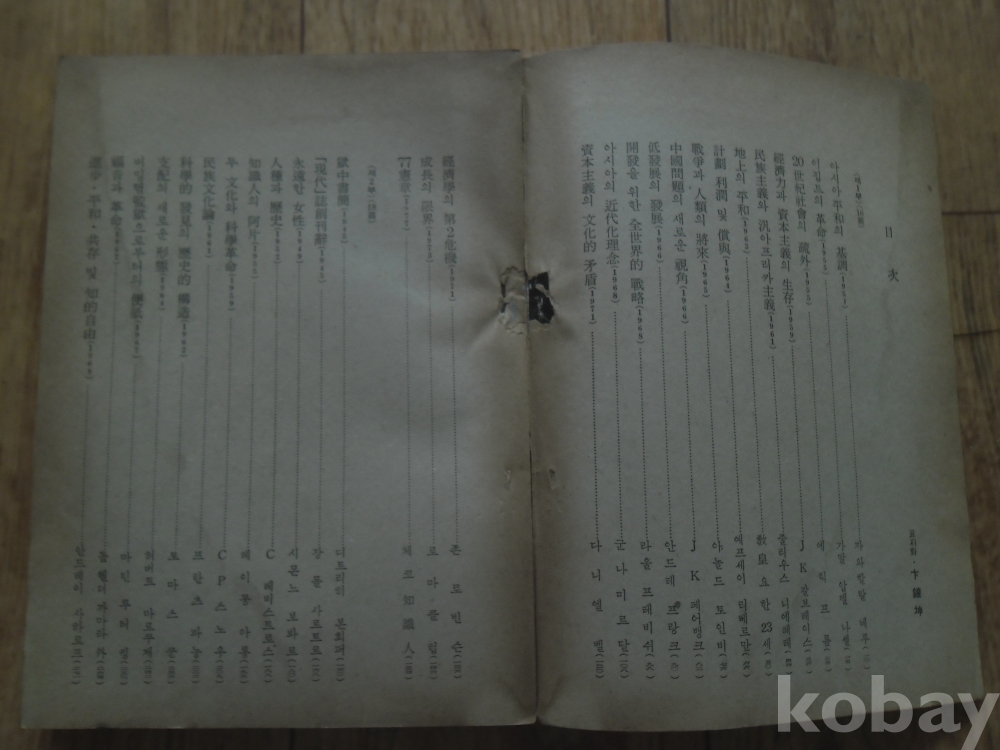 目次
아시아 平和의 基調
자와할랄 네루
이집트의 革命
가말 압델 나셀
20世紀社會의 疏外
에릭 프롬
經濟力과 資本主義의 生存(1959)
J K 갈브레이스
民族主義와 汎아프리카主義(1961)
줄리우스 니에레레
地上의 平和(1963)
敎皇 요한 23세
計劃 利潤 및 償與(1964)
에프세이 리베르만
戰爭과 人類의 將來(1965)
아놀드 토인비
中國問題의 새로운 視角(1966)
J K 페어뱅크
低發展의 發展(1966)
안드레 프랑크
開發을 위한 全世界的 戰略(1968)
라울 프레비쉬
아시아의 近代化理念(1968)
군나 미르달
資本主義의 文化的 矛盾(1971)
다니엘 벨
표지화·卞鍾坤
經濟學의 第2危機
존 로빈슨
成長의 限界
로마클럽
77憲章
체코知識人
獄中書簡
디트리히 본회퍼
「現代」誌創刊辭
장 폴 사르트르
永遠한 女性
시몬느 보봐르
人種과 歷史
C 레비스트로스
知識人의 阿片
레이몽 아롱
두 文化와 科學革命(1959)
C P 스노우
民族文化論
프란츠 파농
科學的 發見의 歷史的 構造(1962)
토마스 쿤
支配의 새로운 形態(1964)
허버트 마르쿠제
버밍햄監獄으로부터의 便紙
마틴 루터 킹
福音과 革命
돔 헬더 까마라 外
進步·平和·共存 및 知的自由(1968)
안드레이 사하로프
kobay